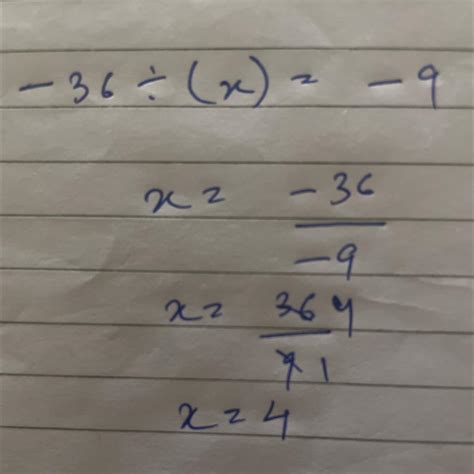 -36 ÷ (x) = -9
x = -36
-9
x = 36 4
9 1
x = 4